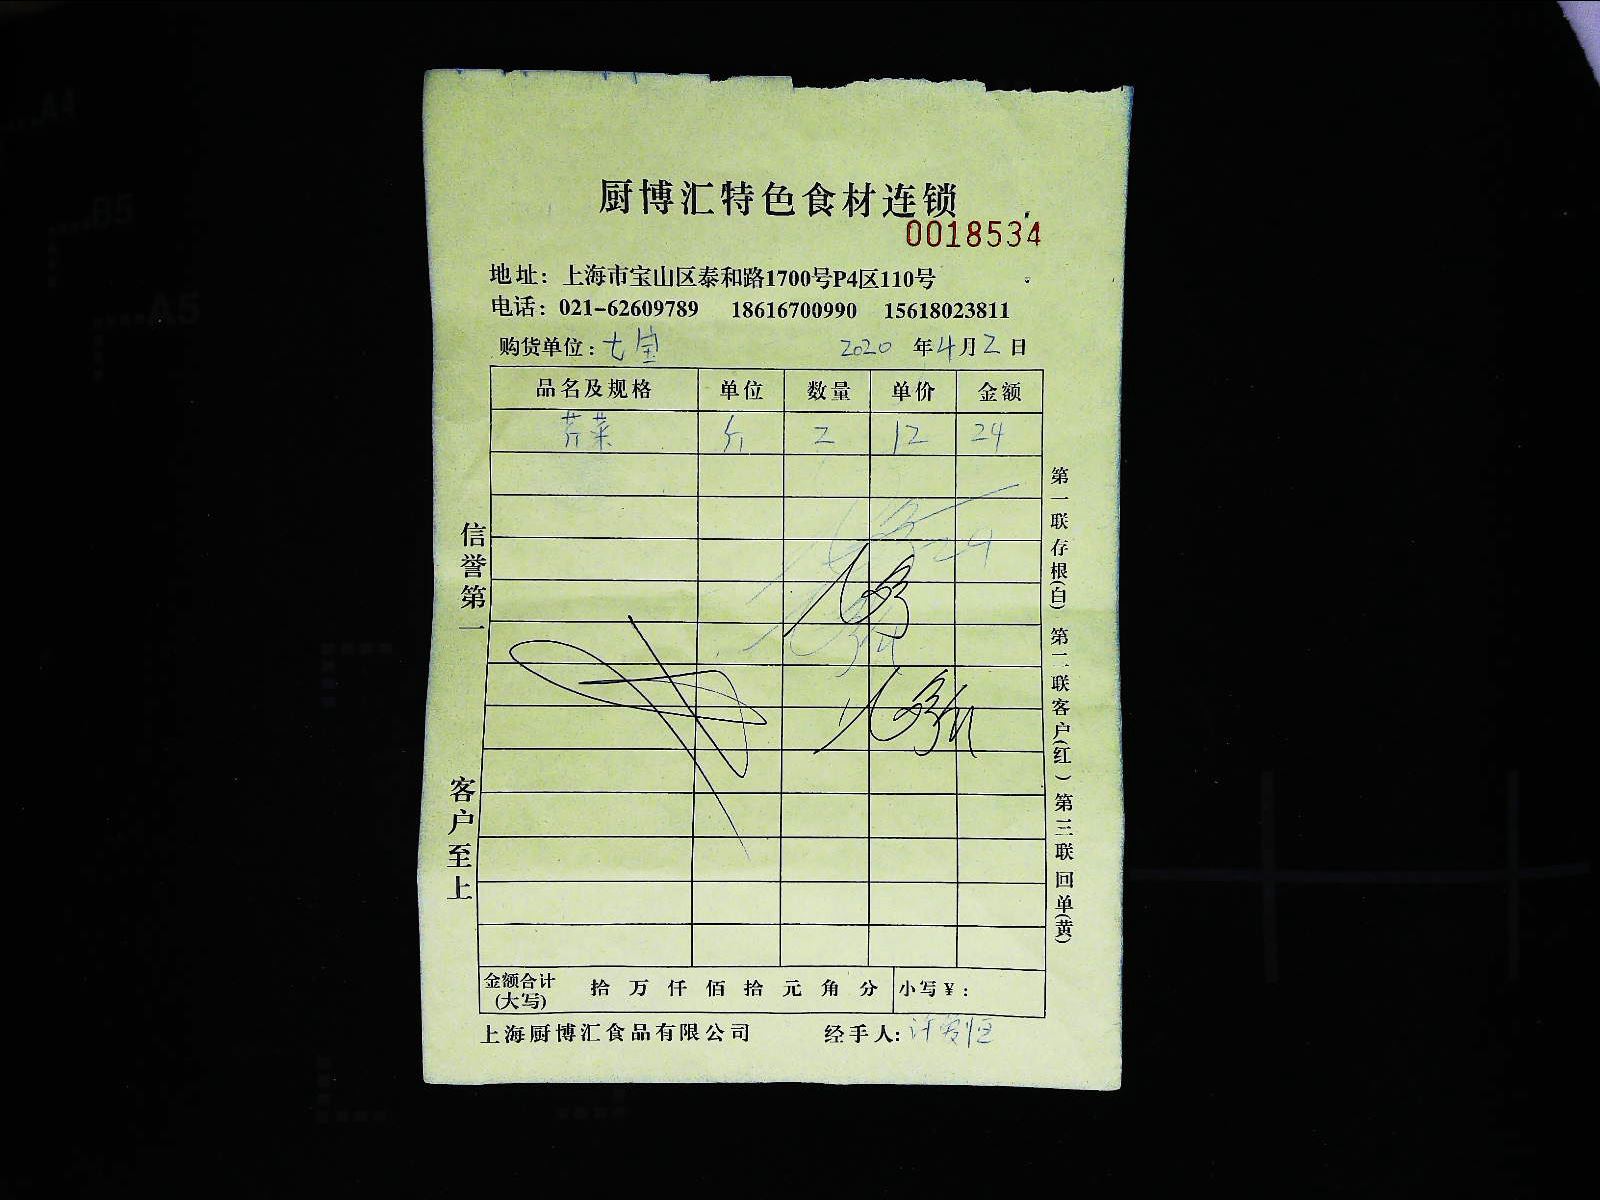 厨博汇特色食材连锁
0018534
地址：上海市宝山区泰和路1700号P4区110号
电话：021-62609789 18616700990 15618023811
购货单位：七宝 2020 年 4 月 2 日
品名及规格 单位 数量 单价 金额
芥菜 斤 2 12 24
信誉第一 客户至上
第一联存根(白) 第二联客户(红) 第三联回单(黄)
金额合计(大写) 拾 万 仟 佰 拾 元 角 分 小写￥：
上海厨博汇食品有限公司 经手人：